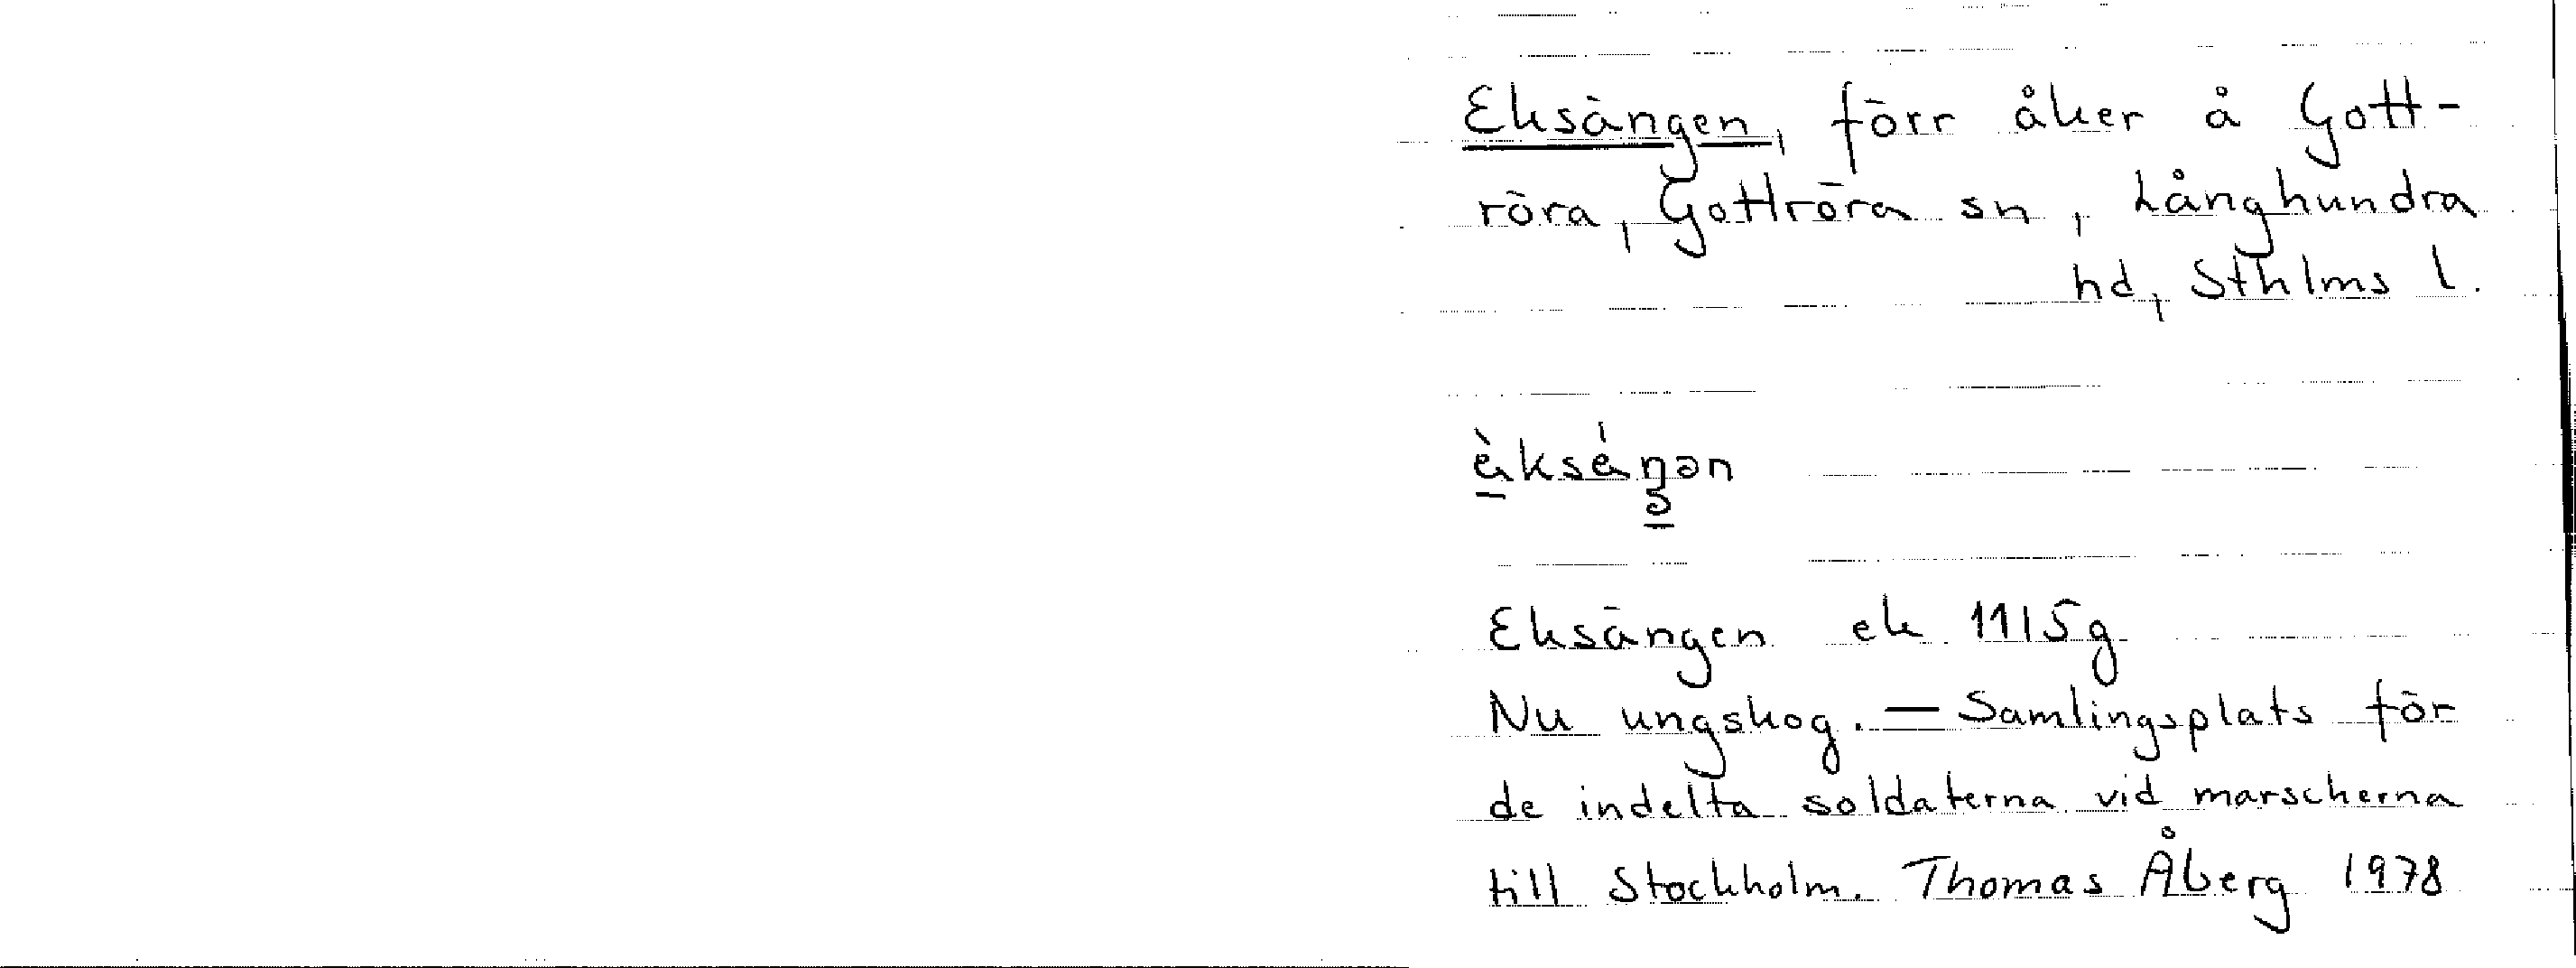 Eksängen, förr åker å Gott-
röra, Gottröra sn, Långhundra
hd, Sthlms l.
Eksängen ek 11I5g
Nu ungskog. — Samlingsplats för
de indelta soldaterna vid marscherna
till Stockholm. Thomas Åberg 1978